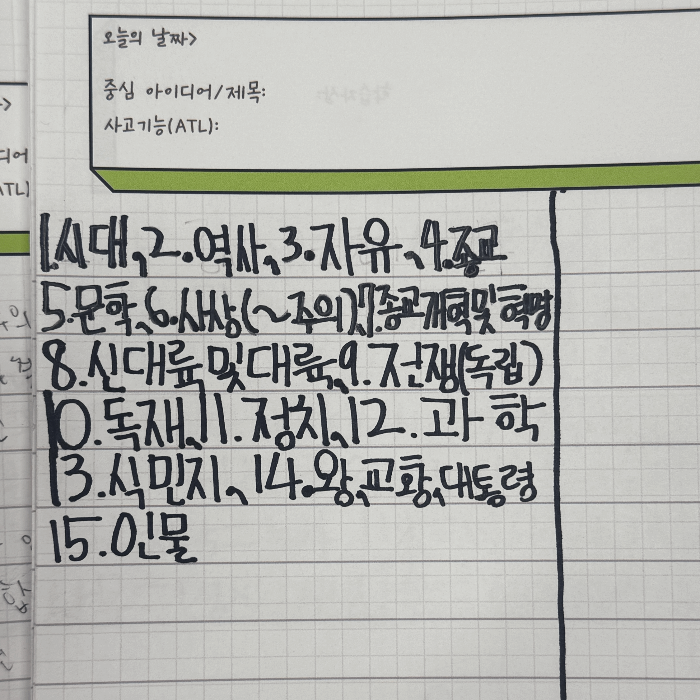 오늘의 날짜>
중심 아이디어/제목:
사고기능(ATL):
1.시대, 2.역사, 3.자유, 4.종교
5.문학, 6.사상(~주의), 7.종교개혁및 혁명
8.신대륙 및 대륙, 9.전쟁(독립)
10.독재, 11.정치, 12.과학
13.식민지, 14.왕,교황,대통령
15.인물